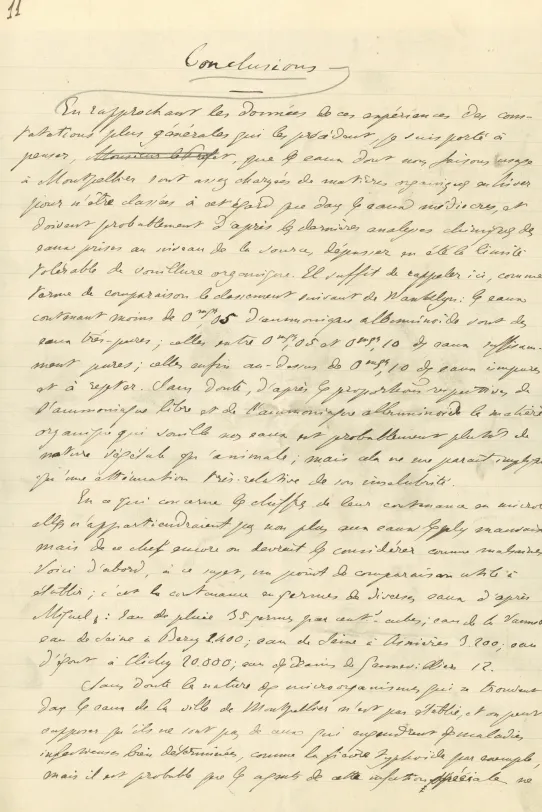 11
Conclusions
En rapprochant les données de ces expériences des cons-
tatations plus générales qui les précèdent, je suis porté à
penser, Monsieur le Préfet, que les eaux dont nous faisons usage
à Montpellier sont assez chargées de matières organiques en hiver
pour n'être classées à cet égard que dans les eaux médiocres, et
doivent probablement d'après les dernières analyses chimiques des
eaux prises au niveau de la source, dépasser en été la limite
tolérable de souillure organique. Il suffit de rappeler ici, comme
terme de comparaison le classement suivant de Wanklyn: les eaux
contenant moins de 0mgr,05 d'ammoniaque albuminoïde sont des
eaux très-pures; celles entre 0mgr,05 et 0mgr,10 des eaux suffisam-
ment pures; celles enfin au-dessus de 0mgr,10 des eaux impures
et à rejeter. Sans doute, d'après les proportions respectives de
l'ammoniaque libre et de l'ammoniaque albuminoïde la matière
organique qui souille nos eaux est probablement plutôt de
nature végétale qu'animale; mais cela ne me paraît impliquer
qu'une atténuation très-relative de son insalubrité.
En ce qui concerne les chiffres de leur contenance en micro
elles n'appartiendraient pas non plus aux eaux les plus mauvaises
mais de ce chef encore on devrait les considérer comme malsaines
Voici d'abord, à ce sujet, un point de comparaison utile à
établir; c'est la contenance en germes de diverses eaux d'après
Miquel: Eau de pluie 35 germes par centi. cubes; eau de la Vanne
eau de Seine à Bercy 1.400; eau de Seine à Asnières 3.200; eau
d'égout à Clichy 20.000; eau de Drains de Gennevilliers 12.
Sans doute la nature des microorganismes qui se trouvent
dans les eaux de la ville de Montpellier n'est pas établie, et on peut
supposer qu'ils ne sont pas de ceux qui engendrent des maladies
infectieuses bien déterminées, comme la fièvre typhoïde par exemple,
mais il est probable que les agents de cette infection spéciale ne